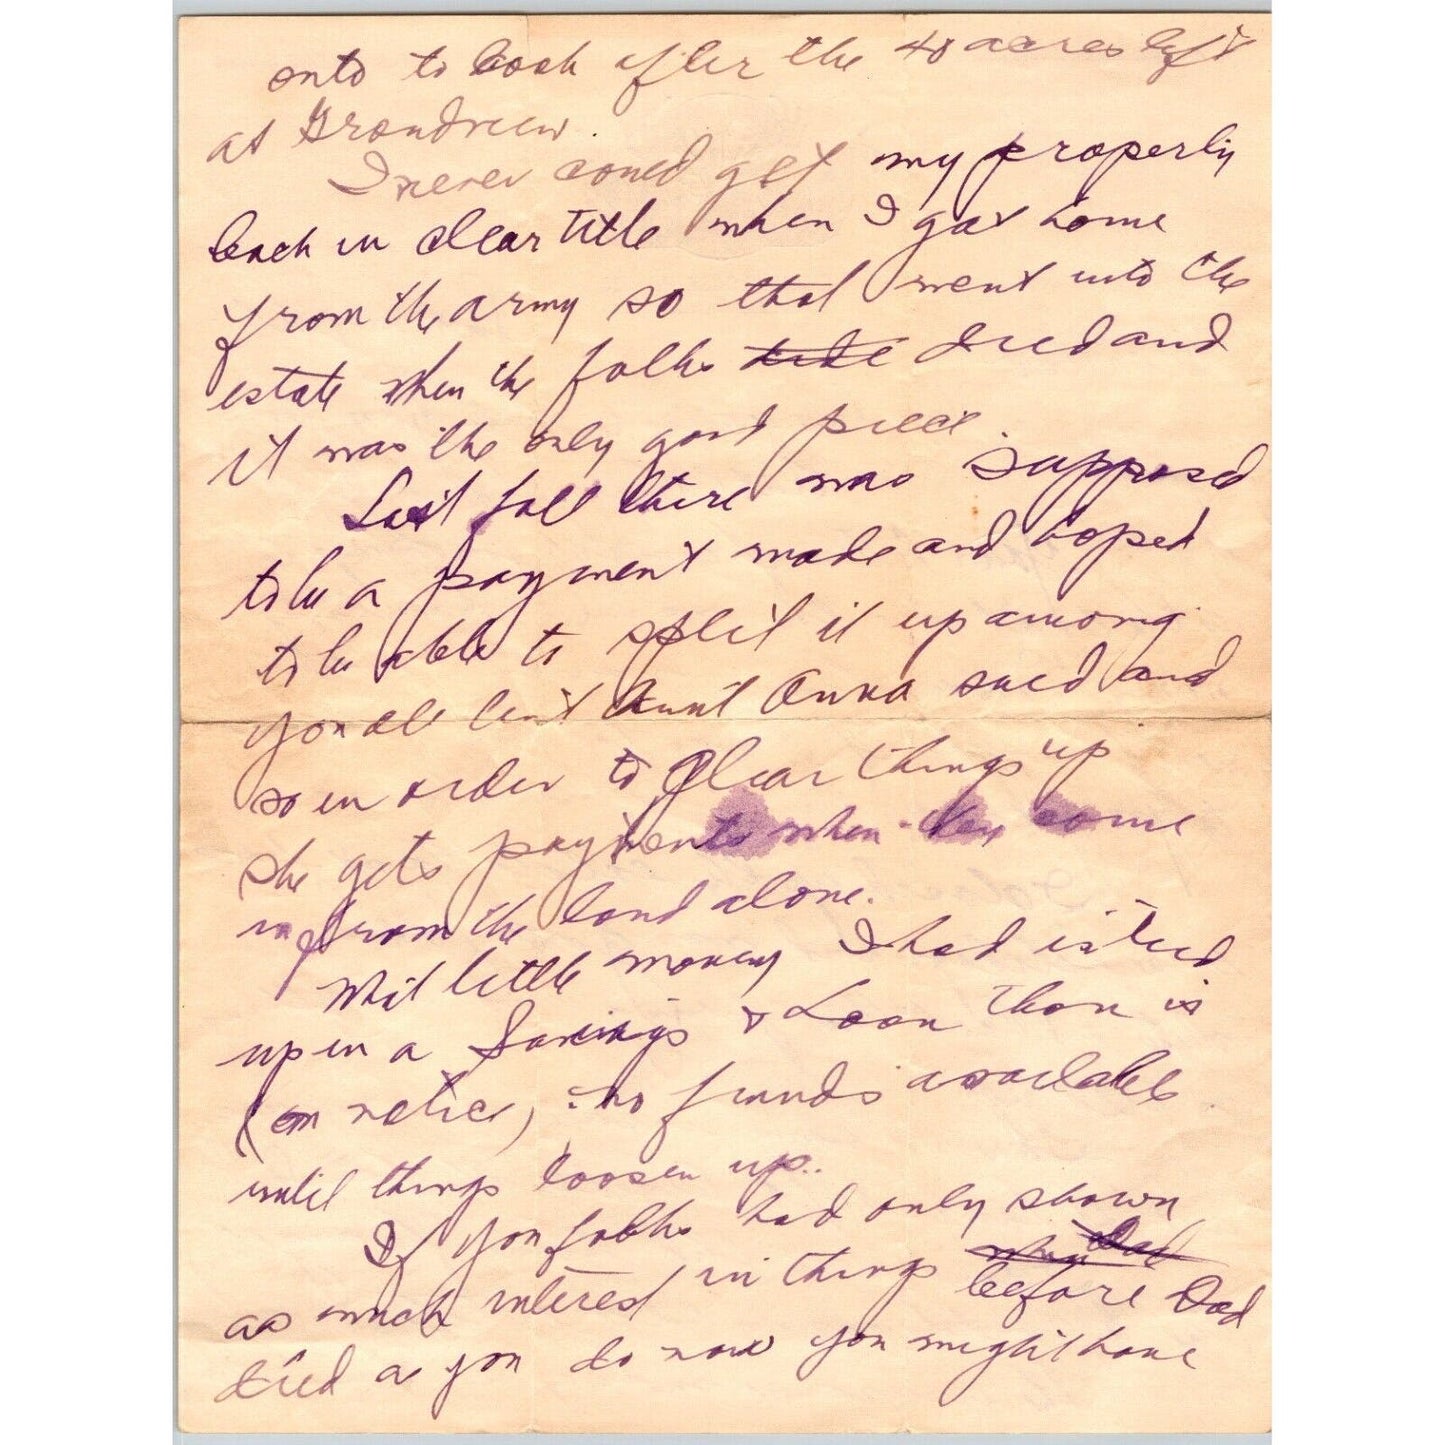 onto to look after the 40 acres left
at Grandview.
I never could get my property
back in clear title when I got home
from the army so that went into the
estate when the folks died and
it was the only good piece.
Last fall there was supposed
to be a payment made and hoped
to be able to split it up among
you all but Aunt Anna sued and
so in order to clear things up
she gets payments when they come
in from the land alone.
What little money I had is tied
up in a Savings & Loan than is
(on notice) no funds available
until things loosen up..
If you folks had only shown
as much interest in things before Dad
died as you do now you might have